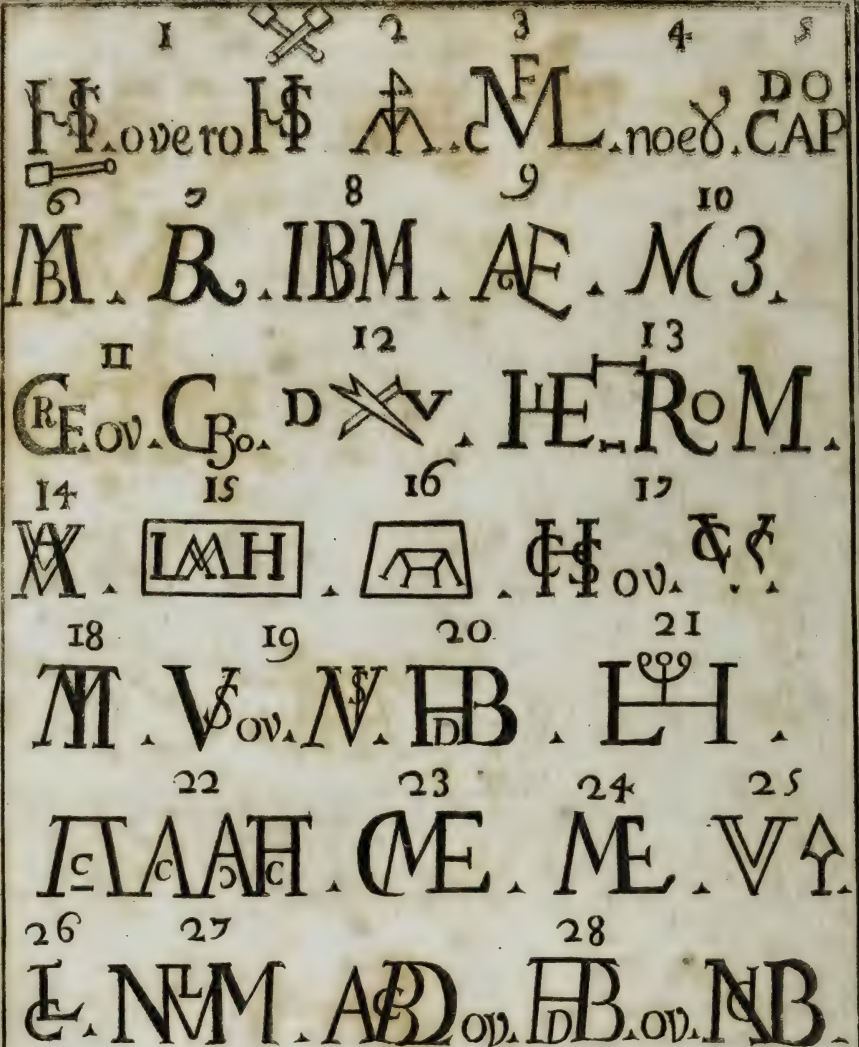 1 2 3 4 5
HS.overo HS M.CMFL.noe8.DO CAP
6 7 8 9 10
MB. BR. IBM. AE. M3.
11 12 13
CREF.ov.CBo. D V. HE-RoM.
14 15 16 17
VA. LMH. H. CHS ov. VC VC.
18 19 20 21
TM. VS ov. NS. HDB. LH.
22 23 24 25
AC AC AC HC. CME. ME. VA.
26 27 28
CL. NLVM. ABCD ov. HDB. ov. NCB.